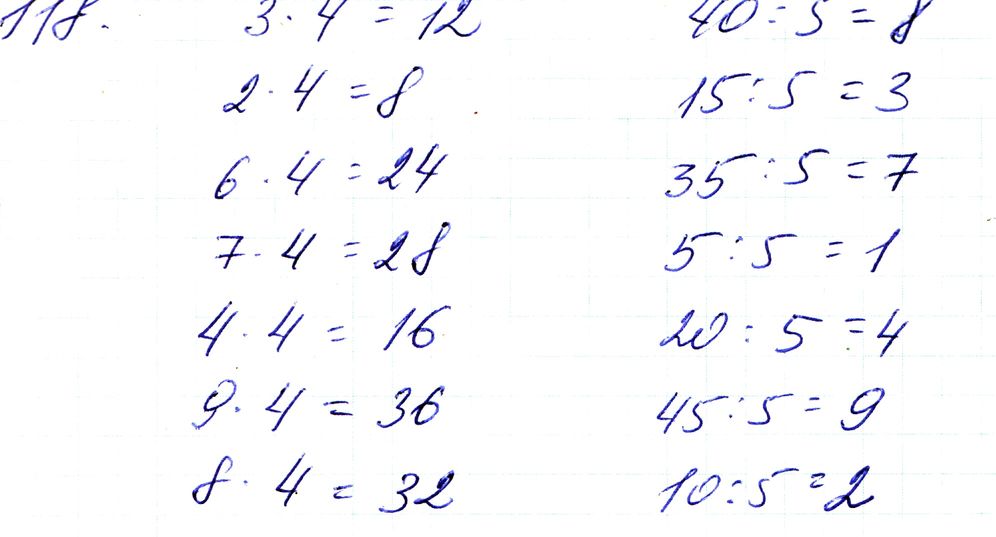 118. 3 · 4 = 12 40 : 5 = 8
2 · 4 = 8 15 : 5 = 3
6 · 4 = 24 35 : 5 = 7
7 · 4 = 28 5 : 5 = 1
4 · 4 = 16 20 : 5 = 4
9 · 4 = 36 45 : 5 = 9
8 · 4 = 32 10 : 5 = 2